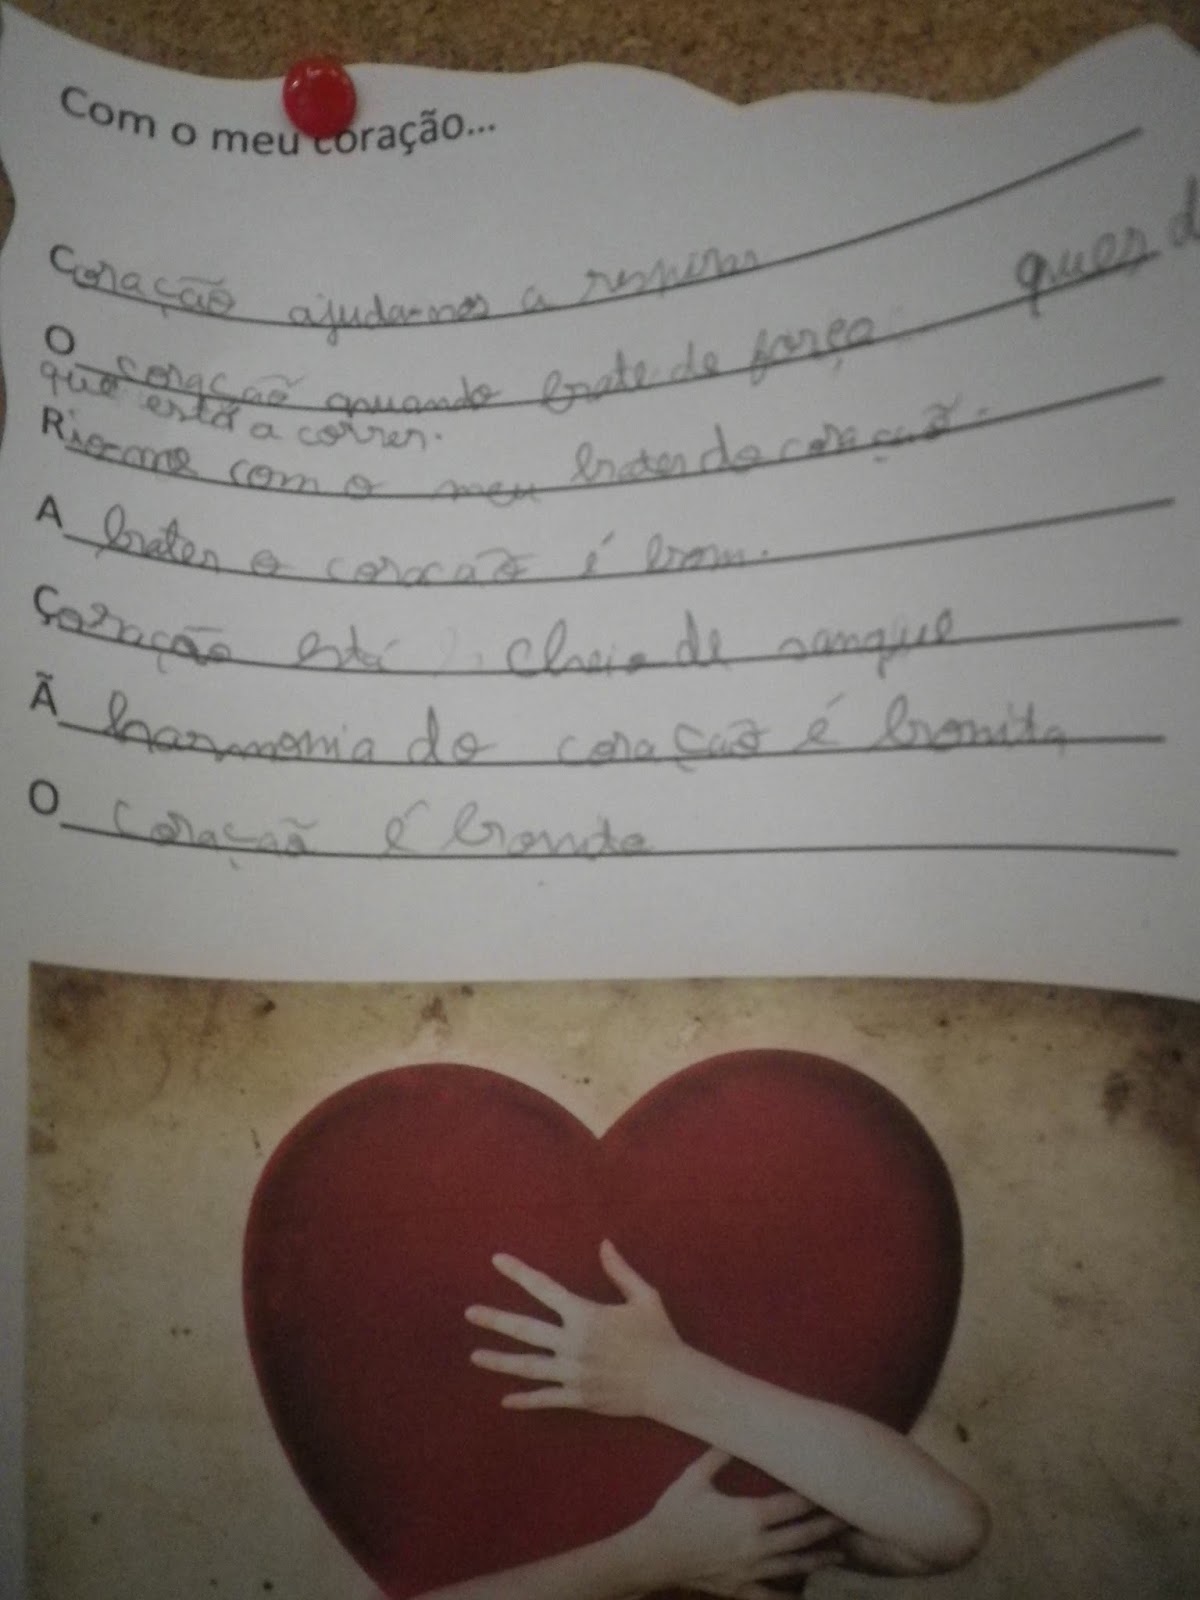 Com o meu coração...
Coração ajuda-nos a respirar
O coração quando bate de força quer d
que está a correr.
Rio-me com o meu bater do coração.
A bater o coração é bom.
Çoração está cheio de sangue
Ã harmonia do coração é bonita
O coração é bonito